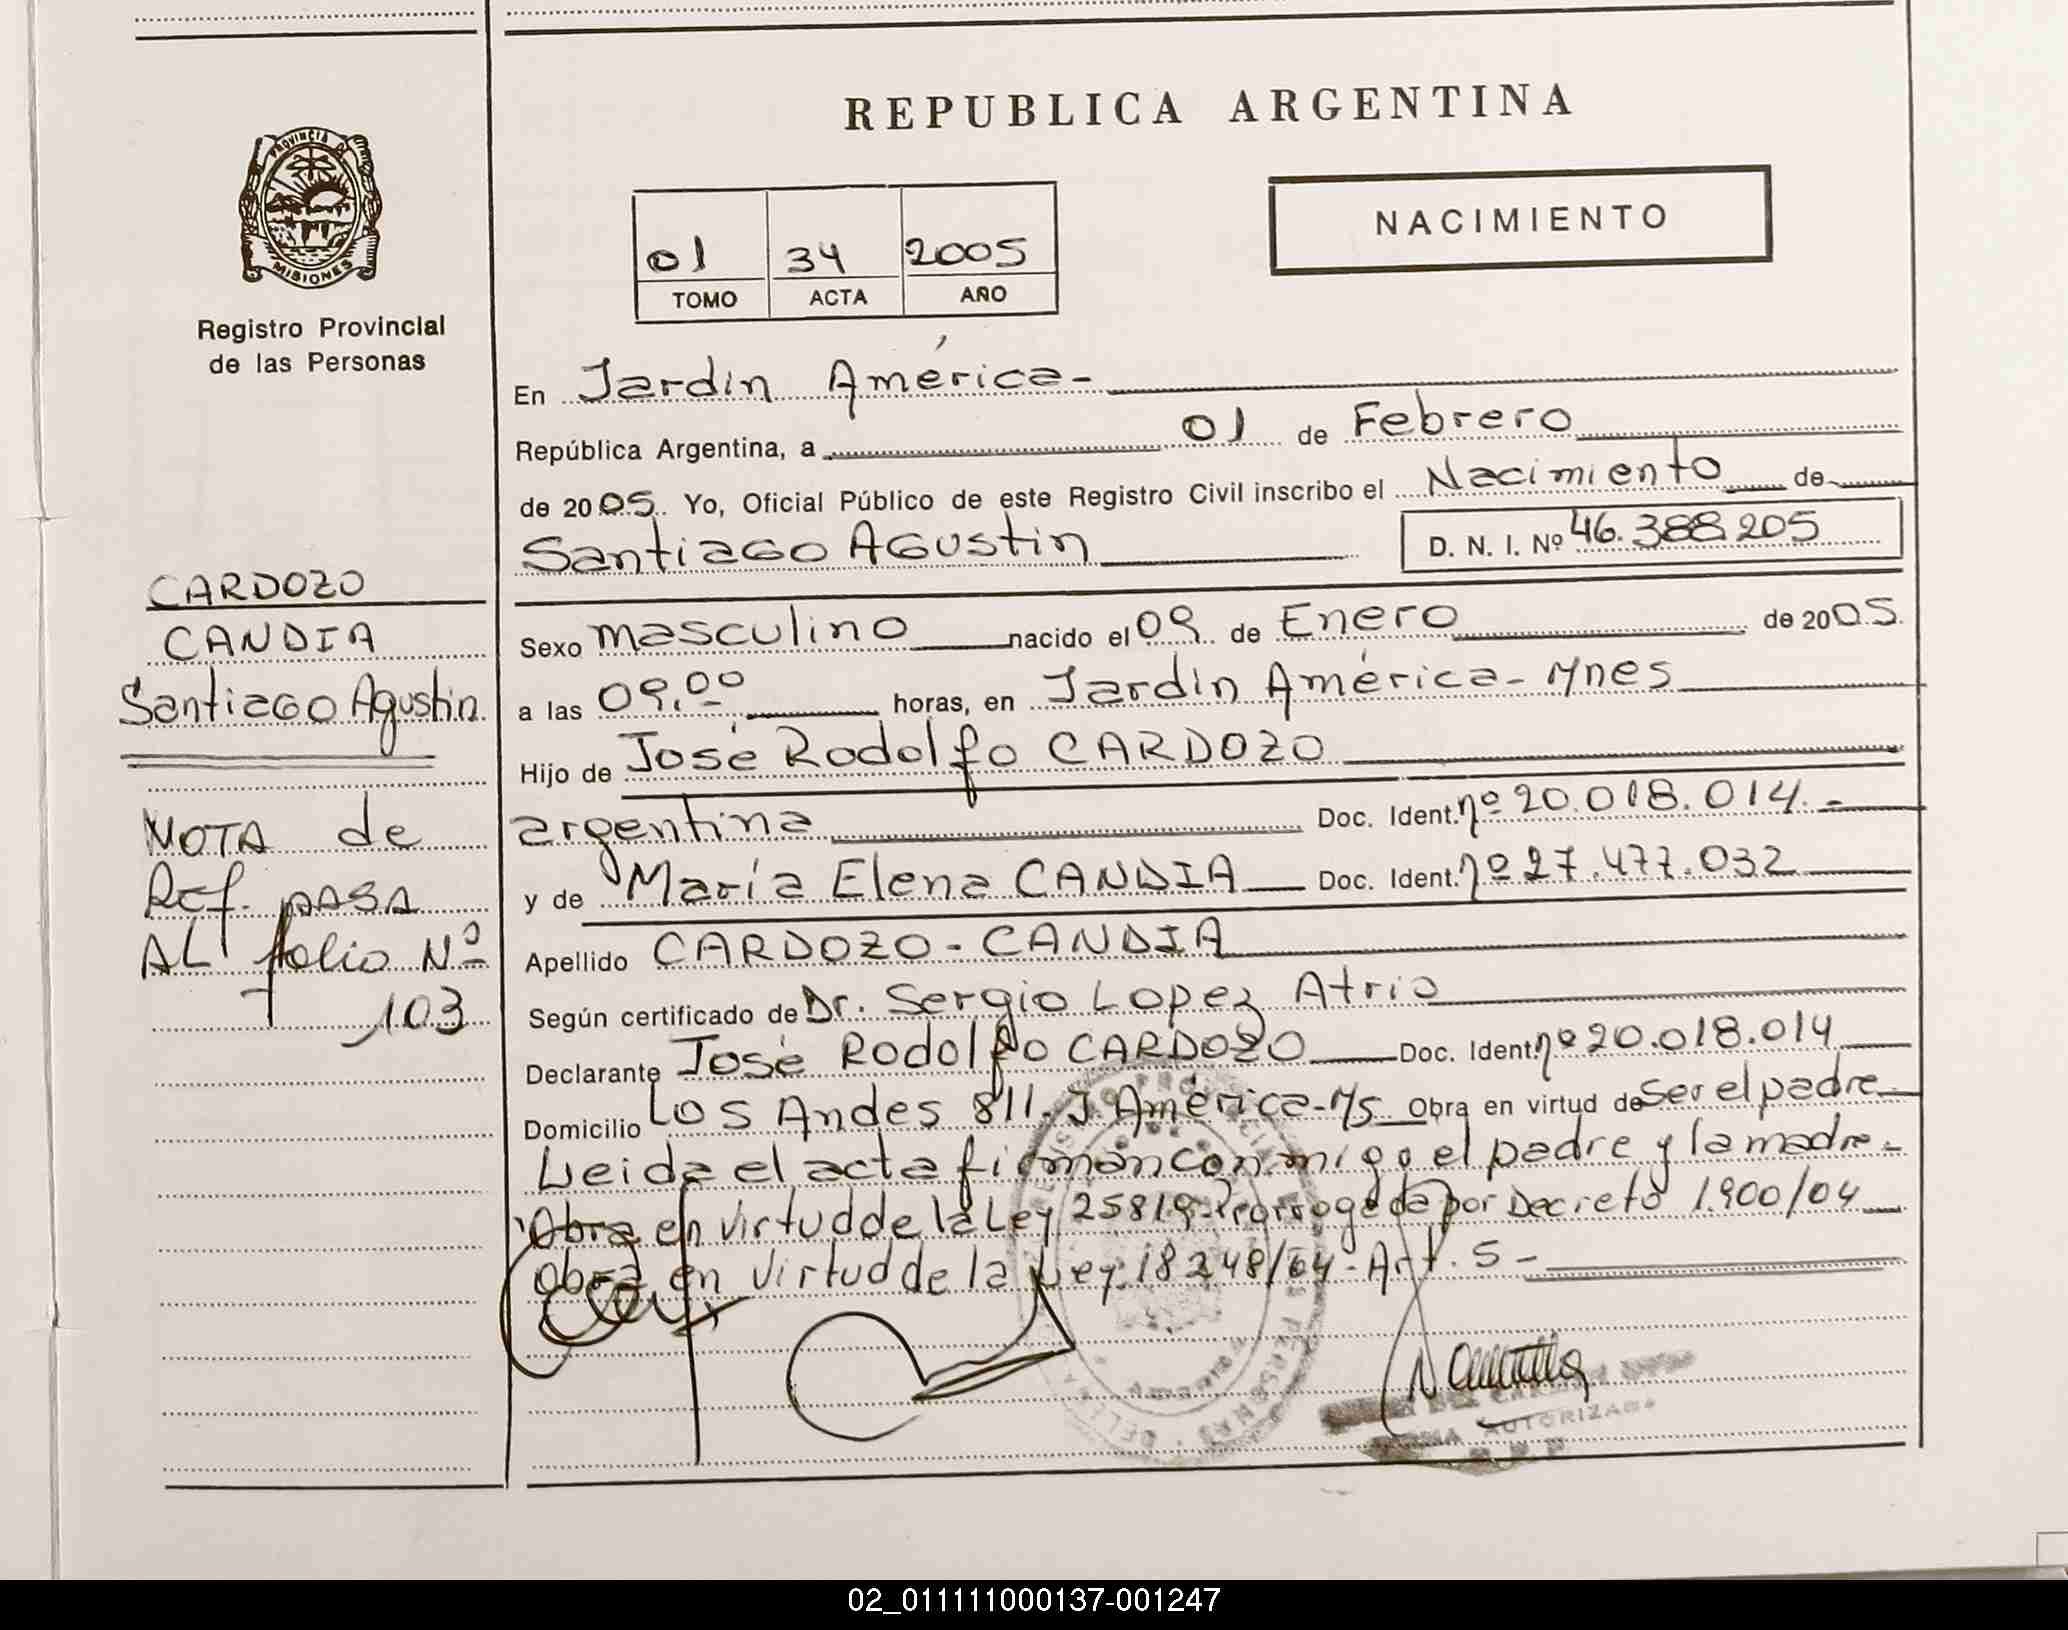 REPUBLICA ARGENTINA
PROVINCIA DE
MISIONES
Registro Provincial
de las Personas
01 34 2005
TOMO ACTA AÑO
NACIMIENTO
En Jardín América-
República Argentina, a 01 de Febrero
de 2005. Yo, Oficial Público de este Registro Civil inscribo el Nacimiento de
Santiago Agustín
D. N. I. Nº 46.388.205
CARDOZO
CANDIA
Santiago Agustín
Sexo masculino nacido el 09 de Enero de 2005.
a las 09.00 horas, en Jardín América- Mnes
Hijo de José Rodolfo CARDOZO
argentina Doc. Ident. nº 20.018.014.-
y de María Elena CANDIA Doc. Ident. nº 27.477.032
Apellido CARDOZO - CANDIA
Según certificado de Dr. Sergio Lopez Atrio
Declarante José Rodolfo CARDOZO Doc. Ident. nº 20.018.014
Domicilio Los Andes 811. J. América-M/s Obra en virtud de Ser el padre
Leida el acta firman conmigo el padre y la madre-
Obra en virtud de la Ley 25819-Prorrogada por Decreto 1.900/04
Obra en virtud de la Ley 18248/64- Art. 5-
NOTA de
Ref. pASA
AL folio Nº
103
AUTORIZADA
02_011111000137-001247